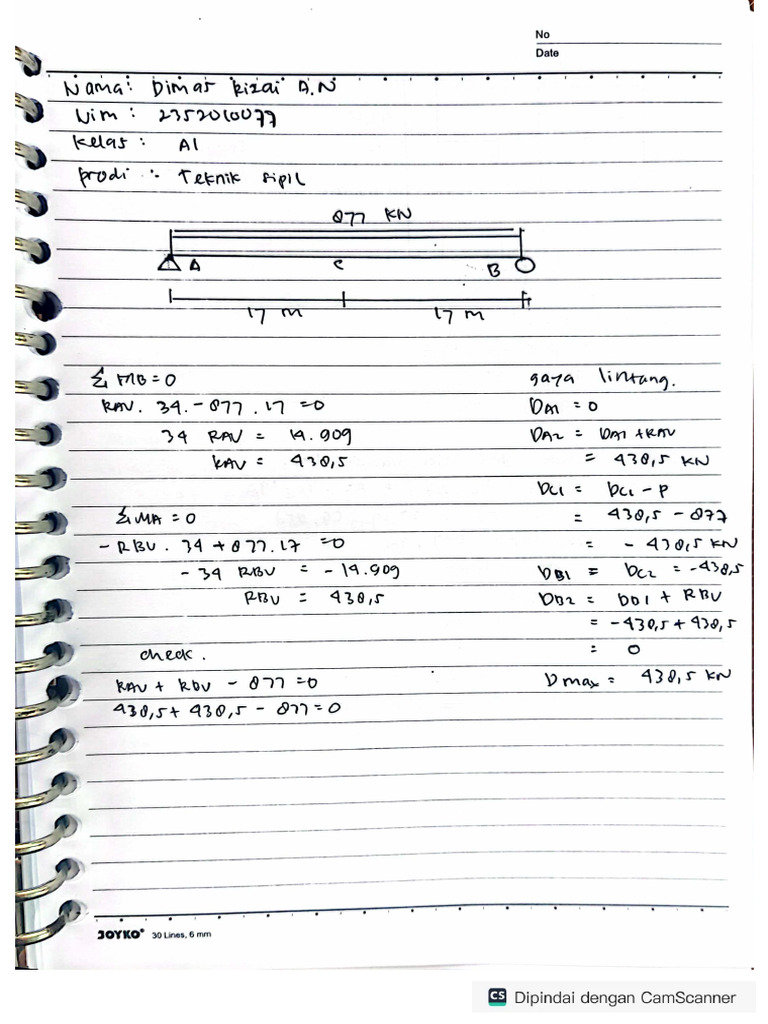 No
Date
Nama : Dimas Rizai A.N
Nim : 2352010077
Kelas : A1
Prodi : Teknik Sipil
877 KN
A C B
17 m 17 m
Σ MB = 0
RAV . 34 . - 877 . 17 = 0
34 RAV = 14.909
RAV = 438,5
Σ MA = 0
- RBV . 34 + 877 . 17 = 0
- 34 RBV = - 14.909
RBV = 438,5
check .
RAV + RBV - 877 = 0
438,5 + 438,5 - 877 = 0
gaya lintang.
DA1 = 0
DA2 = DA1 + RAV
= 438,5 KN
DC1 = DC1 - P
= 438,5 - 877
= - 438,5 KN
DB1 = DC2 = - 438,5
DB2 = DB1 + RBV
= - 438,5 + 438,5
= 0
Dmax = 438,5 KN
JOYKO® 30 Lines, 6 mm
CS Dipindai dengan CamScanner